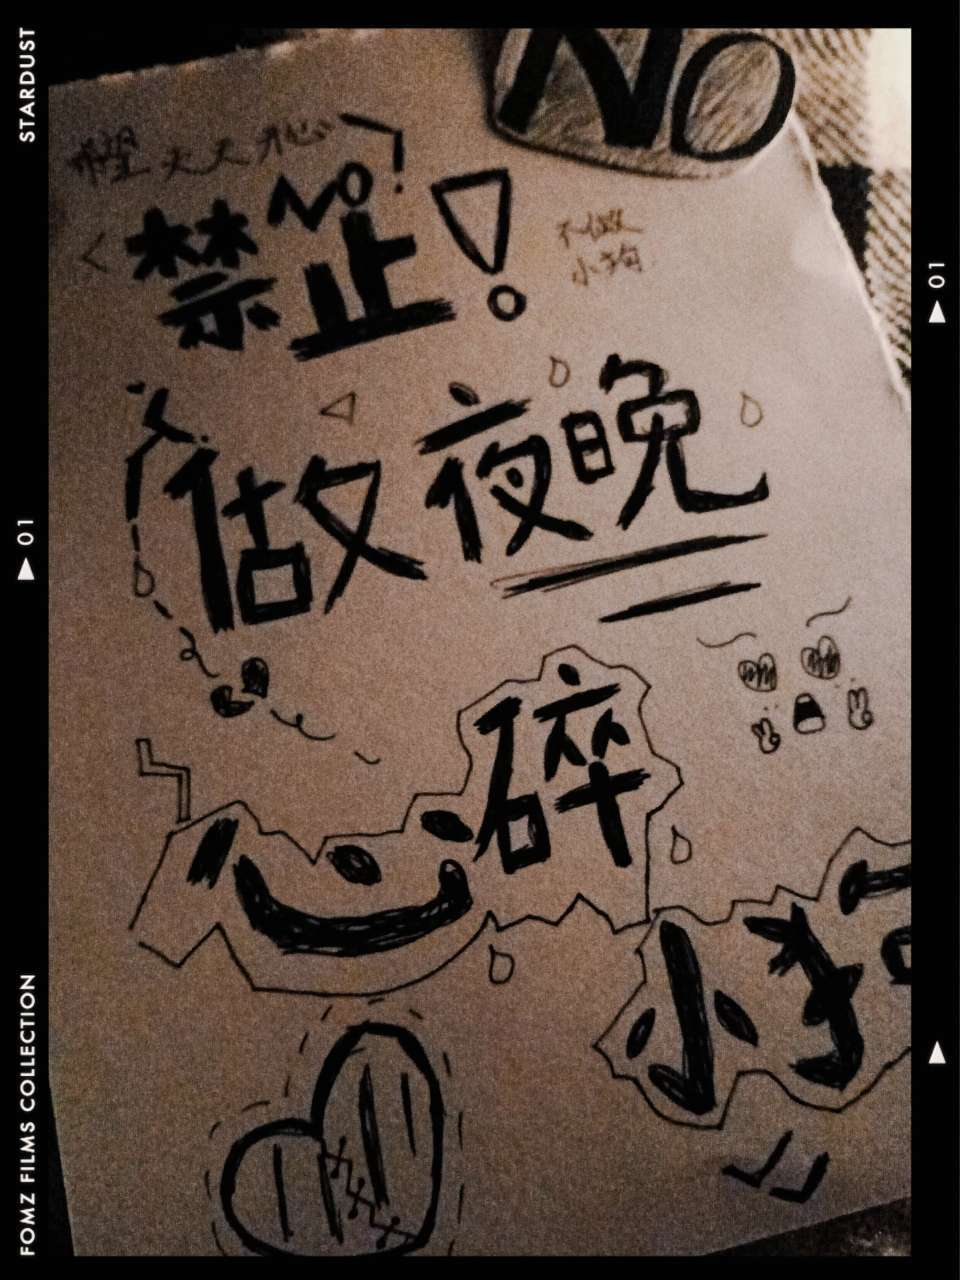 STARDUST
NO
天天开心
NO
禁止!
不做
小狗
做夜晚
心碎
小狗
01
01
FOMZ FILMS COLLECTION